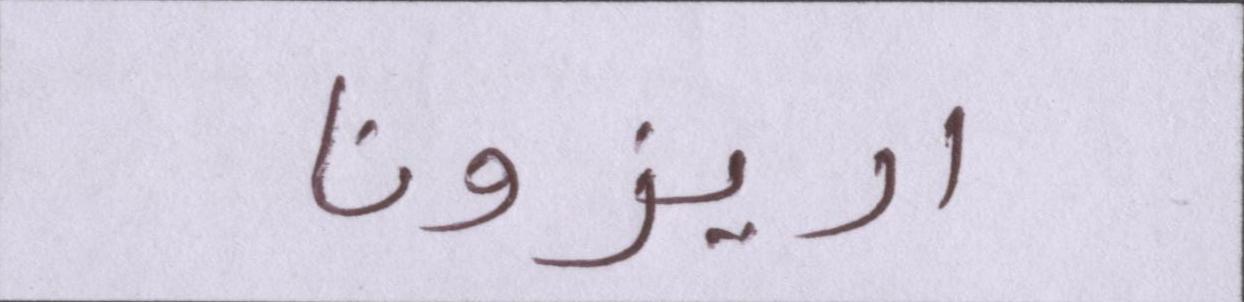 اريزونا